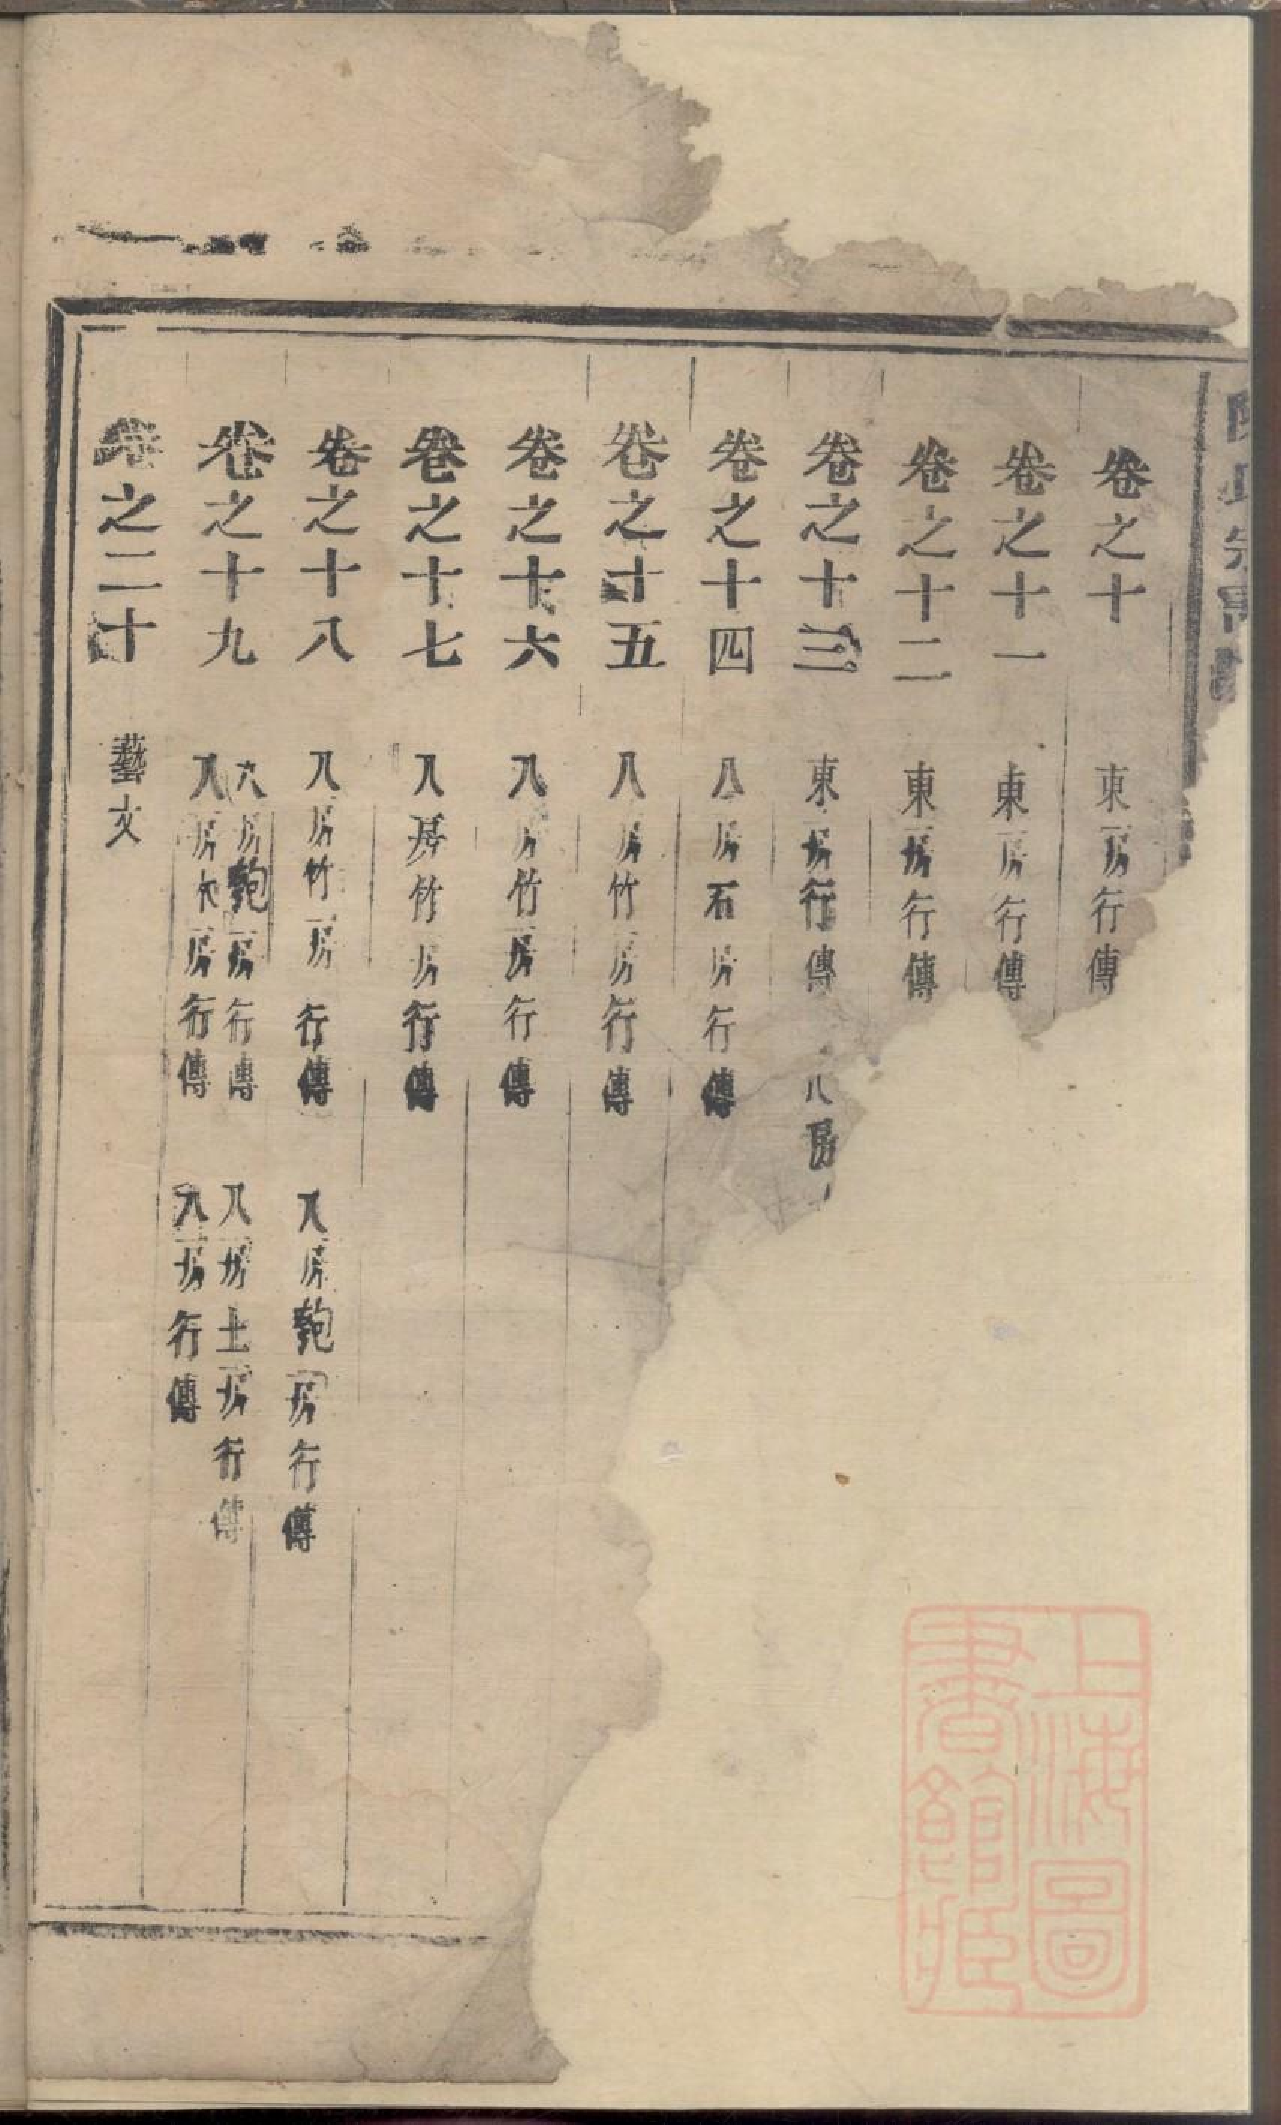 卷之十 東房行傳
卷之十一 東房行傳
卷之十二 東房行傳
卷之十三 東房行傳 八房
卷之十四 八房石房行傳
卷之十五 八房竹房行傳
卷之十六 八房竹房行傳
卷之十七 八房竹房行傳
卷之十八 八房竹房行傳 八房匏房行傳
卷之十九 六房匏房行傳 八房土房行傳
八房木房行傳 八房行傳
卷之二十 藝文
上海圖
書館藏